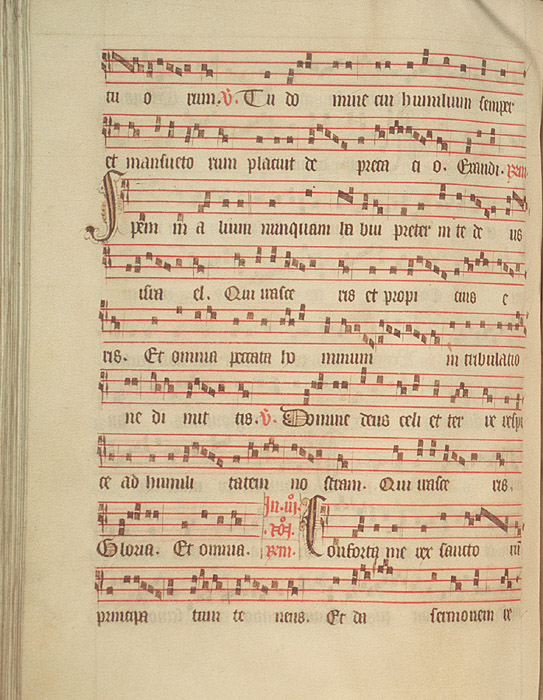 tu o rum. V. Tu do mine cui humilium semper
et mansueto rum placuit de preca ci o. Exaudi. Rem
Spem in a lium nunquam ha bui preter in te de us
isra el. Qui irasce ris et propi cius e
ris. Et omnia peccata ho minum in tribulatio
ne di mit tis. V. Domine deus celi et ter re respi
ce ad humili tatem no stram. Qui irasce ris.
Gloria. Et omnia. Rem. Conforta me rex sancto
principa tum te nens. Et da sermonem re